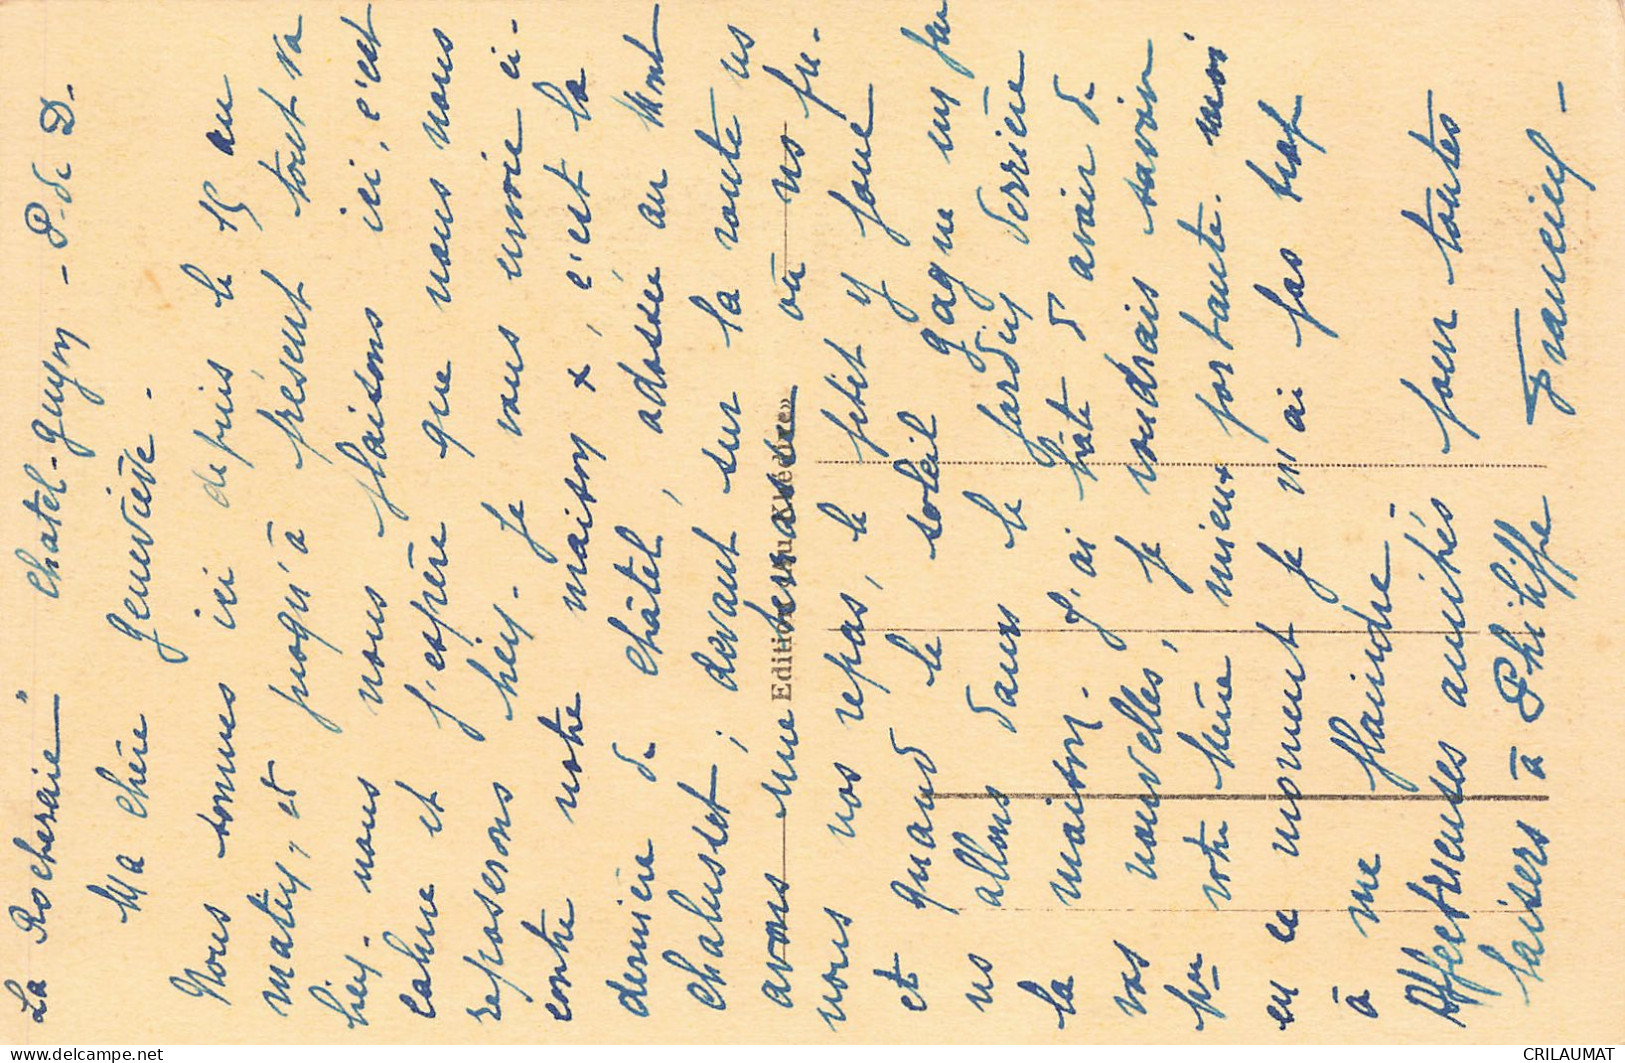 "La Rocheraie" Chatel-Guyon - P. de D.
Ma chère Geneviève -
Nous sommes ici depuis le 15 au
matin, et jusqu'à présent tout va
bien. nous nous plaisons ici, c'est
calme et j'espère que nous nous
reposerons bien. Je vous envoie ci-
contre notre maison x, c'est la
dernière de Châtel, adossée au Mont
Chalusset ; devant sur la route ns
avons une terrasse où ns pre-
nons nos repas, le petit y joue
et quand le soleil gagne un peu
ns allons dans le jardin derrière
la maison. J'ai hâte d'avoir de
vos nouvelles, je voudrais savoir
votre mère mieux portante. moi
en ce moment je n'ai pas trop
à me plaindre
Affectueuses amitiés pour toutes
baisers à Philippe Francine -
Editions du «Cèdre»
CRILAUMAT
www.delcampe.net